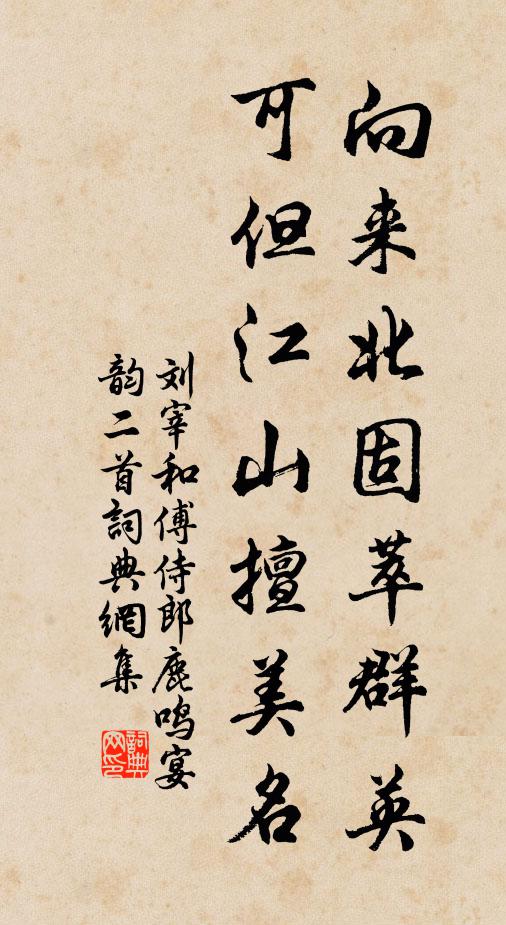 向来北固萃群英
可但江山擅美名
刘宰和傅侍郎鹿鸣宴
韵二首詞典網集
詞典網印